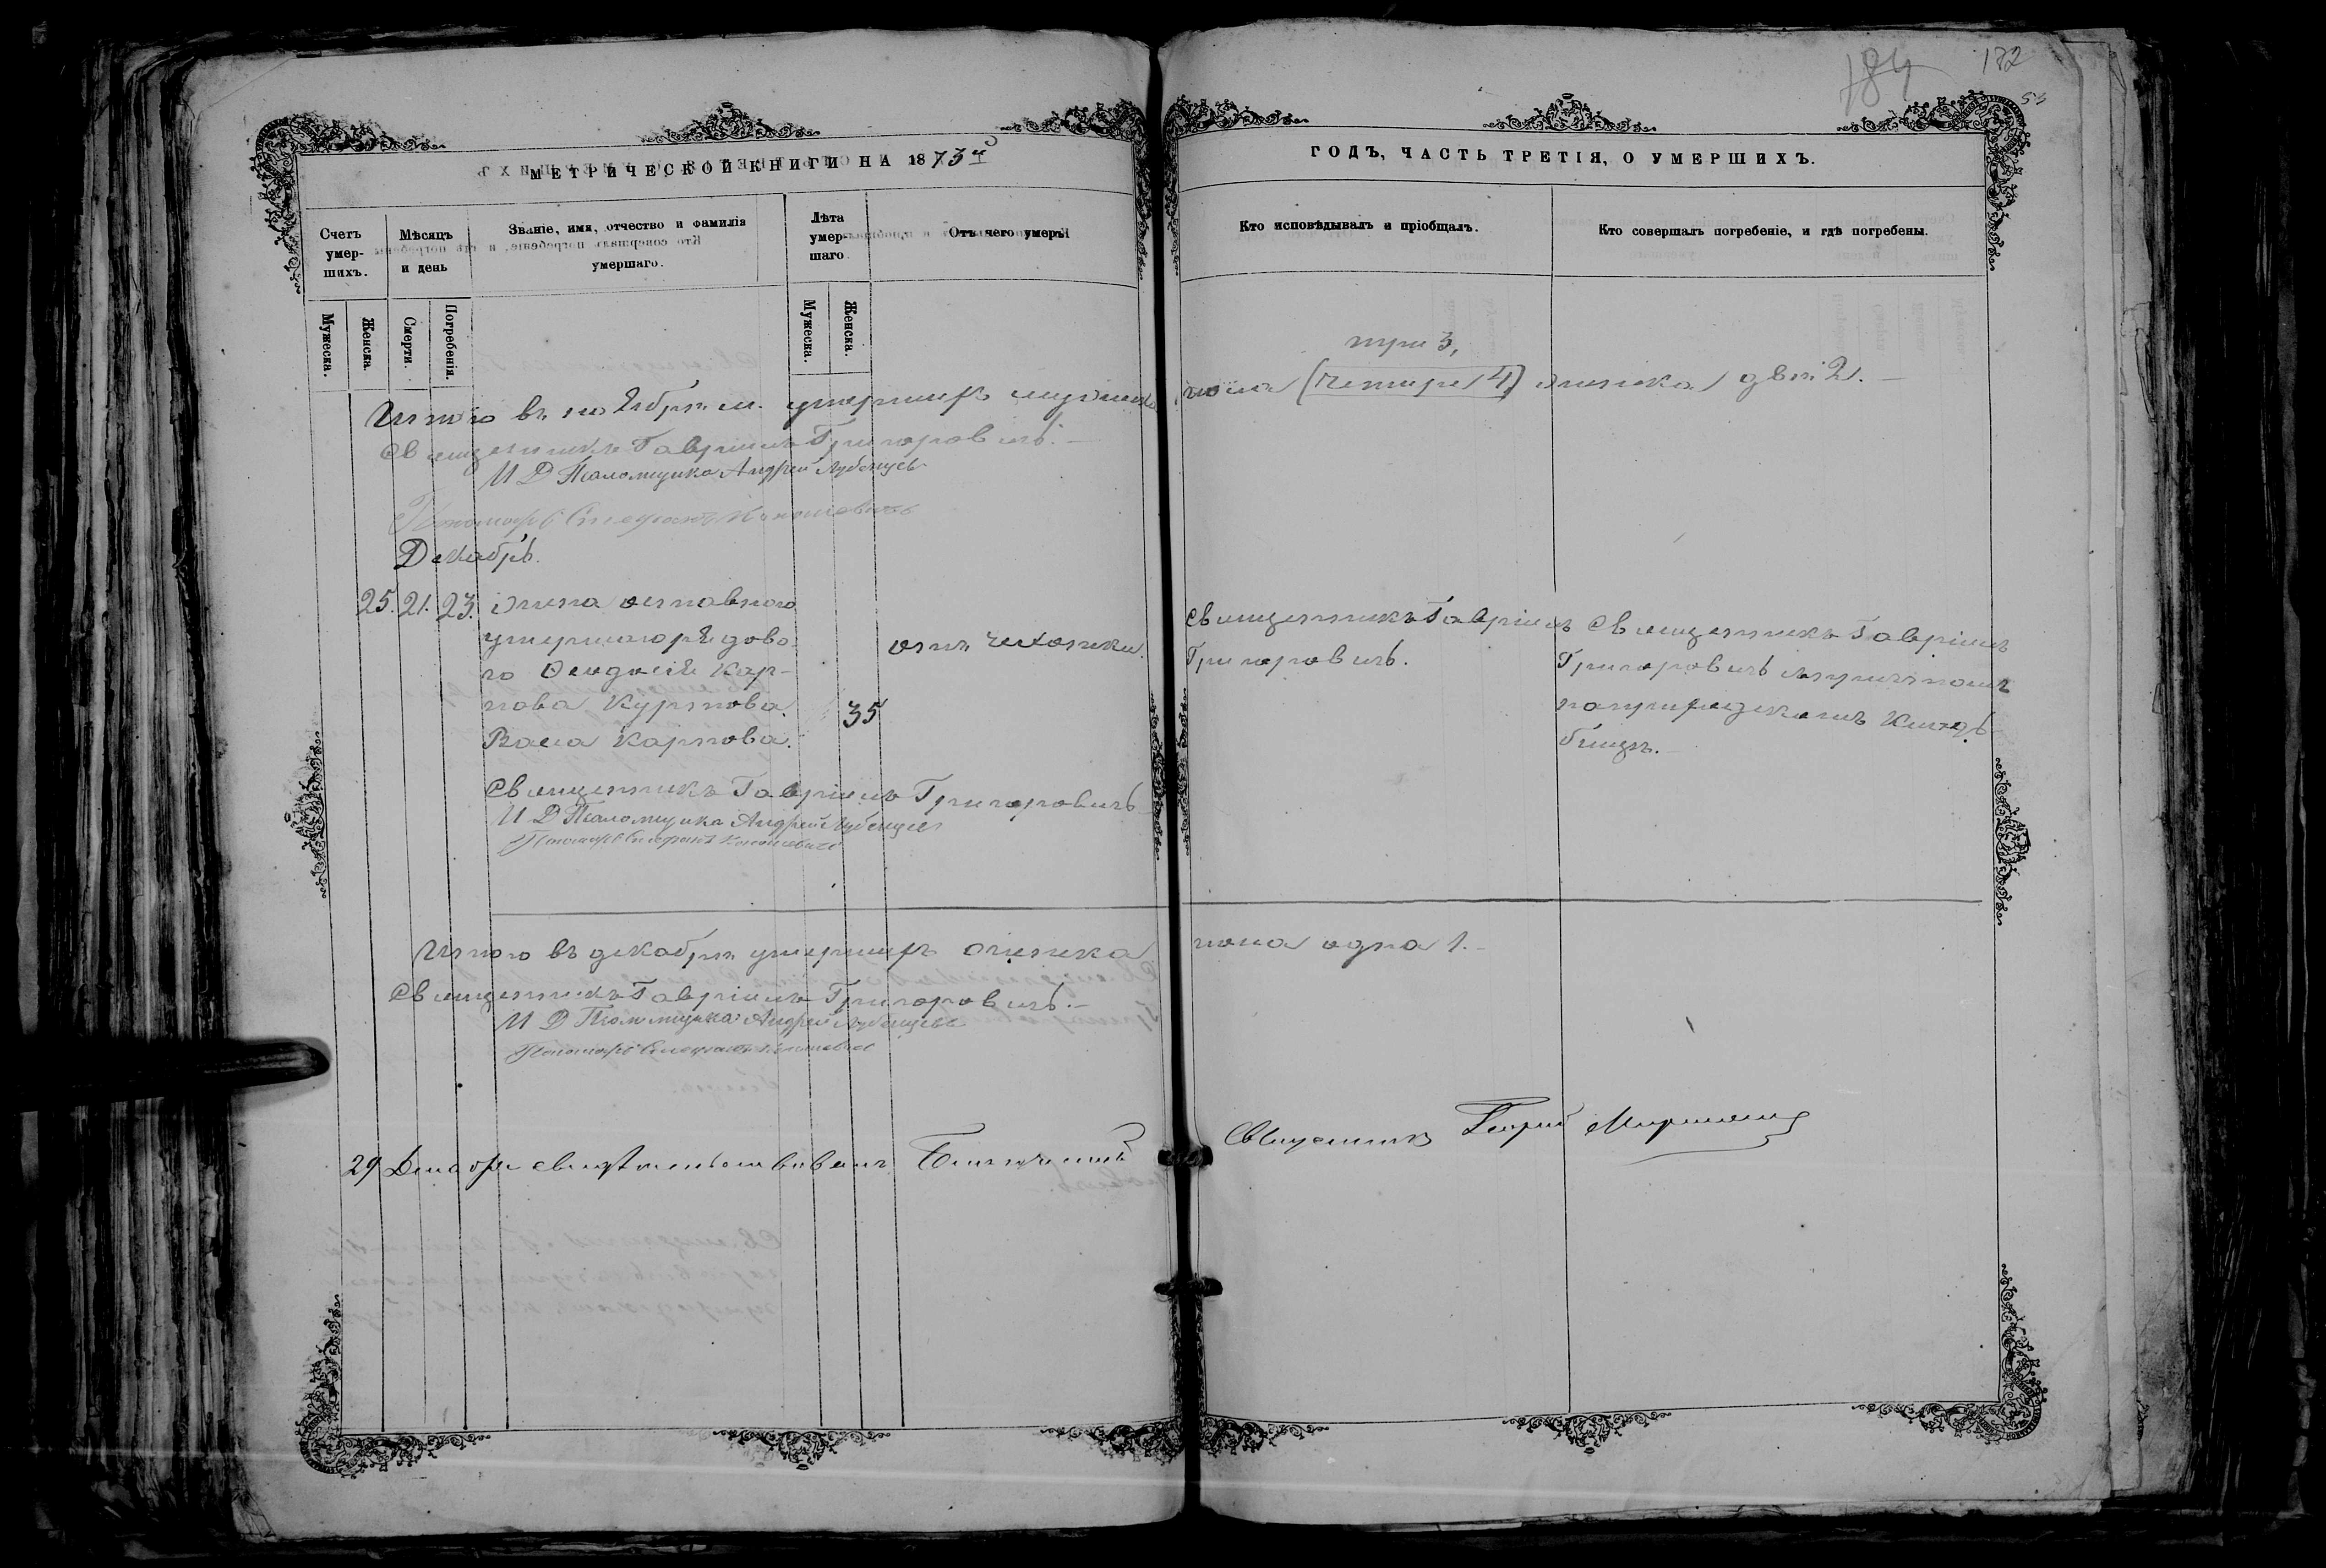 184
172
53
МЕТРИЧЕСКОЙ КНИГИ НА 1873й
ГОДЪ, ЧАСТЬ ТРЕТІЯ, О УМЕРШИХЪ.
Счетъ умер-шихъ.
Мѣсяцъ и день
Званіе, имя, отчество и фамилія умершаго.
Лѣта умер-шаго
Отъ чего умеръ
Кто исповѣдывалъ и пріобщалъ.
Кто совершалъ погребеніе, и гдѣ погребены.
Мужеска.
Женска.
Смерти.
Погребенія.
Мужеска.
Женска.
три 3,
Итого въ ноябрѣ м. умершихъ мужеска пола (четыре 4) женска двѣ 2.
Священникъ Гавріилъ Григоровичъ.
И Д Псаломщика Андрей Лубенцевъ
Пономарь Стефанъ
Декабрь.
25. 21. 23. Жена отставного
умершаго рядово-
го Ѳеодосія Кар-
пова Курпова
Васса Карпова.
35
отъ чахотки.
Священникъ Гавріилъ
Григоровичъ.
Священникъ Гавріилъ
Григоровичъ
кладъ-
бищѣ.
Священникъ Гавріилъ Григоровичъ
И Д Псаломщика Андрей Лубенцевъ
Пономарь Стефанъ
Итого въ декабрѣ умершихъ женска пола одна 1.
Священникъ Гавріилъ Григоровичъ.
И Д Псаломщика Андрей Лубенцевъ
Пономарь Стефанъ
29 Декабря свидѣтельствовалъ Благочинный
Священникъ